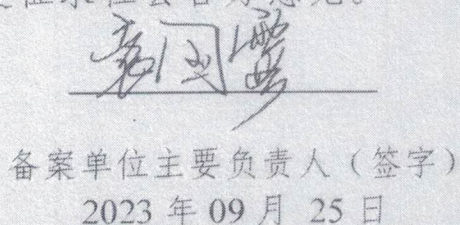 袁国
备案单位主要负责人（签字）
2023 年 09 月 25 日